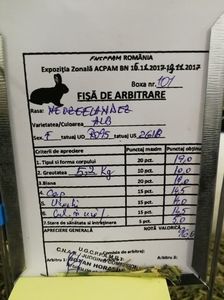 ROMÂNIA
Expoziția Zonală ACPAM BN 16.11.2017-19.11.2017
Boxa nr. 101
FIȘĂ DE ARBITRARE
Rasa: NEOZEELANDEZ
Varietatea/Culoarea ALB
Sex F tatuaj UO R095 tatuaj US 2G18
Criterii de apreciere Punctaj maxim Punctaj obținut
1. Tipul și forma corpului 20 pct. 19,0
2. Greutatea 5,2 Kg 10 pct. 10,0
3. Blana 20 pct. 19,0
4. Cap 15 pct. 14,5
5. Urechi 15 pct. 14,0
6. Culoare 15 pct. 14,5
7. Stare de sănătate și întreținere 5 pct. 5,0
APRECIERE GENERALĂ NOTĂ VALORICĂ
Arbitru 1: Arbitru 2: